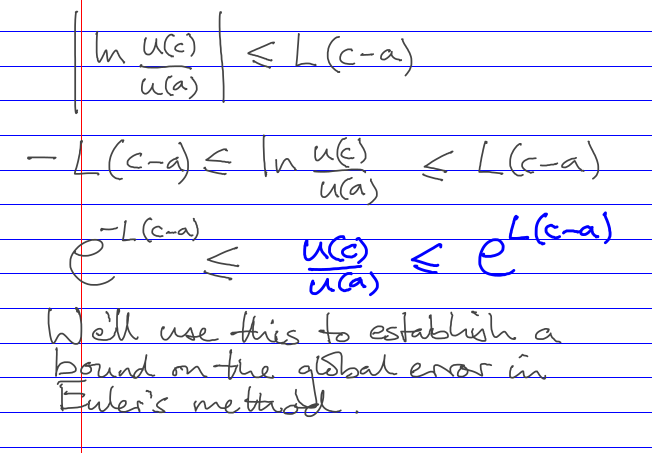 |ln u(c)/u(a)| ≤ L(c-a)
-L(c-a) ≤ ln u(c)/u(a) ≤ L(c-a)
e^{-L(c-a)} ≤ u(c)/u(a) ≤ e^{L(c-a)}
We'll use this to establish a
bound on the global error in
Euler's method.